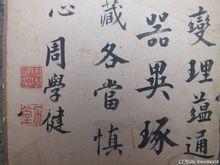 變理蘊通
器異琢
藏各當慎
心周學健